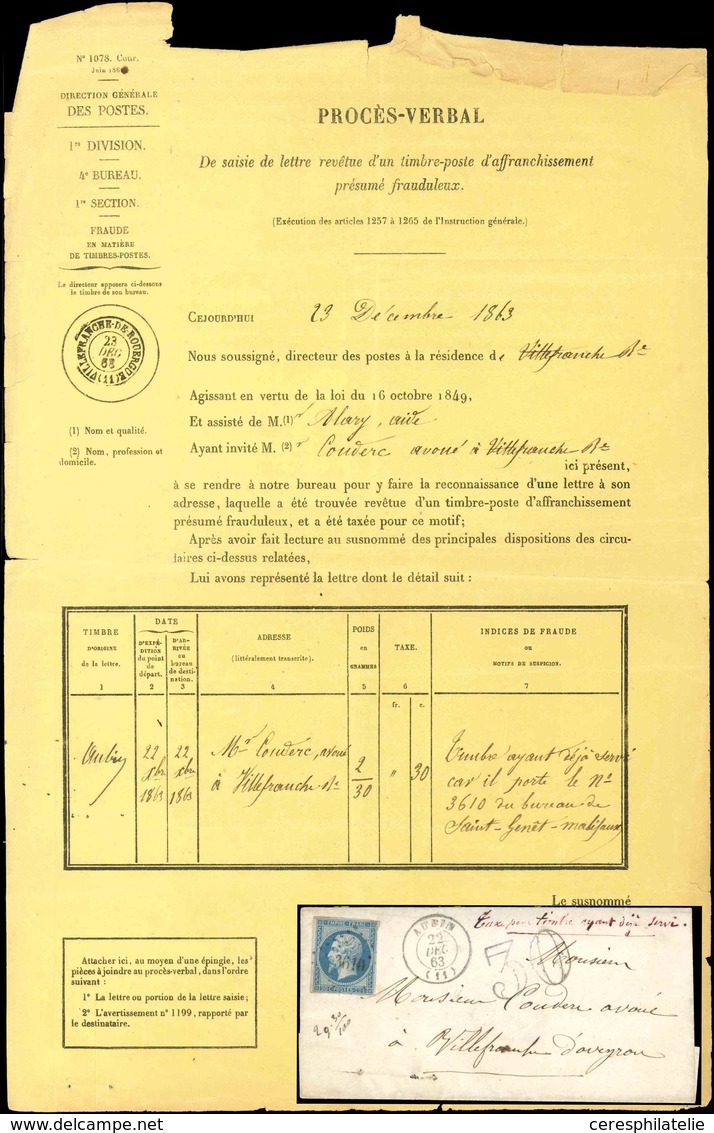 N° 1078. Cour.
Juin 186
DIRECTION GÉNÉRALE
DES POSTES.
1re DIVISION.
4e BUREAU.
1re SECTION.
FRAUDE
EN MATIÈRE
DE TIMBRES-POSTES.
Le directeur apposera ci-dessous
le timbre de son bureau.
VILLEFRANCHE-DE-ROUERGUE
23
DEC
63
(11)
(1) Nom et qualité.
(2) Nom, profession et
domicile.
PROCÈS-VERBAL
De saisie de lettre revêtue d'un timbre-poste d'affranchissement
présumé frauduleux.
(Exécution des articles 1257 à 1265 de l'Instruction générale.)
CEJOURD'HUI 23 Décembre 1863
Nous soussigné, directeur des postes à la résidence de Villefranche Rue
Agissant en vertu de la loi du 16 octobre 1849,
Et assisté de M.(1) Alary, aide
Ayant invité M. (2) Couderc avoué à Villefranche Rue
ici présent,
à se rendre à notre bureau pour y faire la reconnaissance d'une lettre à son
adresse, laquelle a été trouvée revêtue d'un timbre-poste d'affranchissement
présumé frauduleux, et a été taxée pour ce motif;
Après avoir fait lecture au susnommé des principales dispositions des circu-
laires ci-dessus relatées,
Lui avons représenté la lettre dont le détail suit :
TIMBRE
D'ORIGINE
de la lettre.
1
DATE
D'EXPÉ-
DITION
du point
de
départ.
2
D'AR-
RIVÉE
au
bureau
de desti-
nation.
3
ADRESSE
(littéralement transcrite).
4
POIDS
en
GRAMMES
5
TAXE.
6
fr. c.
INDICES DE FRAUDE
OU
MOTIFS DE SUSPICION.
7
Aubin
22
xbre
1863
22
xbre
1863
Mr Couderc, avoué
à Villefranche Rue
2
30
" 30
Timbre ayant déjà servi
car il porte le No
3610 du bureau de
Saint-Genêt-malifaux
Le susnommé
Attacher ici, au moyen d'une épingle, les
pièces à joindre au procès-verbal, dans l'ordre
suivant :
1° La lettre ou portion de la lettre saisie;
2° L'avertissement n° 1199, rapporté par
le destinataire.
EMPIRE FRANC
3610
20 C. POSTES 20 C.
AUBIN
22
DEC
63
(11)
Taxe pour timbre ayant déjà servi.
30
Monsieur
Monsieur Couderc avoué
à Villefranche d'aveyron
2 g. 30/100
ceresphilatelie